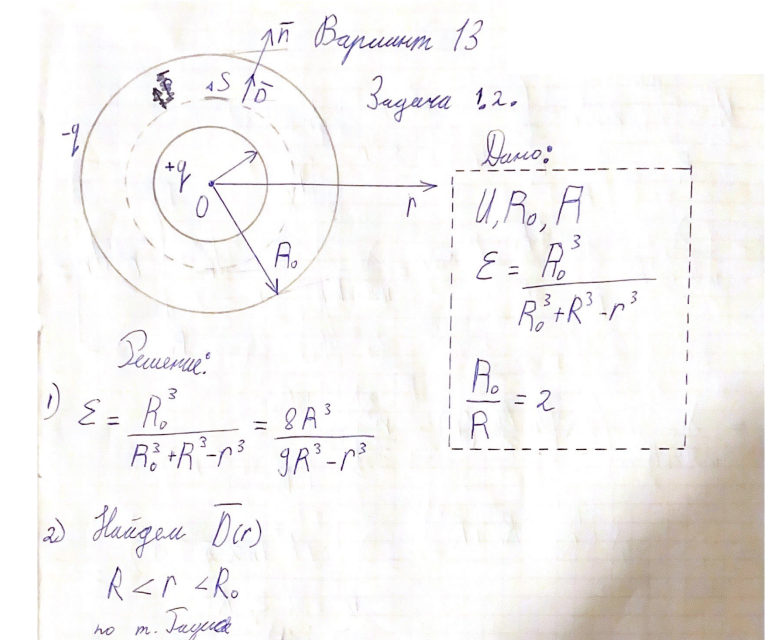 n̄ Вариант 13
ΔS D̄
Задача 1.2.
-q
+q
O r
R₀
Дано:
U, R₀, R
ε = R₀³ / (R₀³+R³-r³)
R₀/R = 2
Решение:
1) ε = R₀³ / (R₀³+R³-r³) = 8R³ / (9R³-r³)
2) Найдем D̄(r)
R < r < R₀
по т. Гаусса